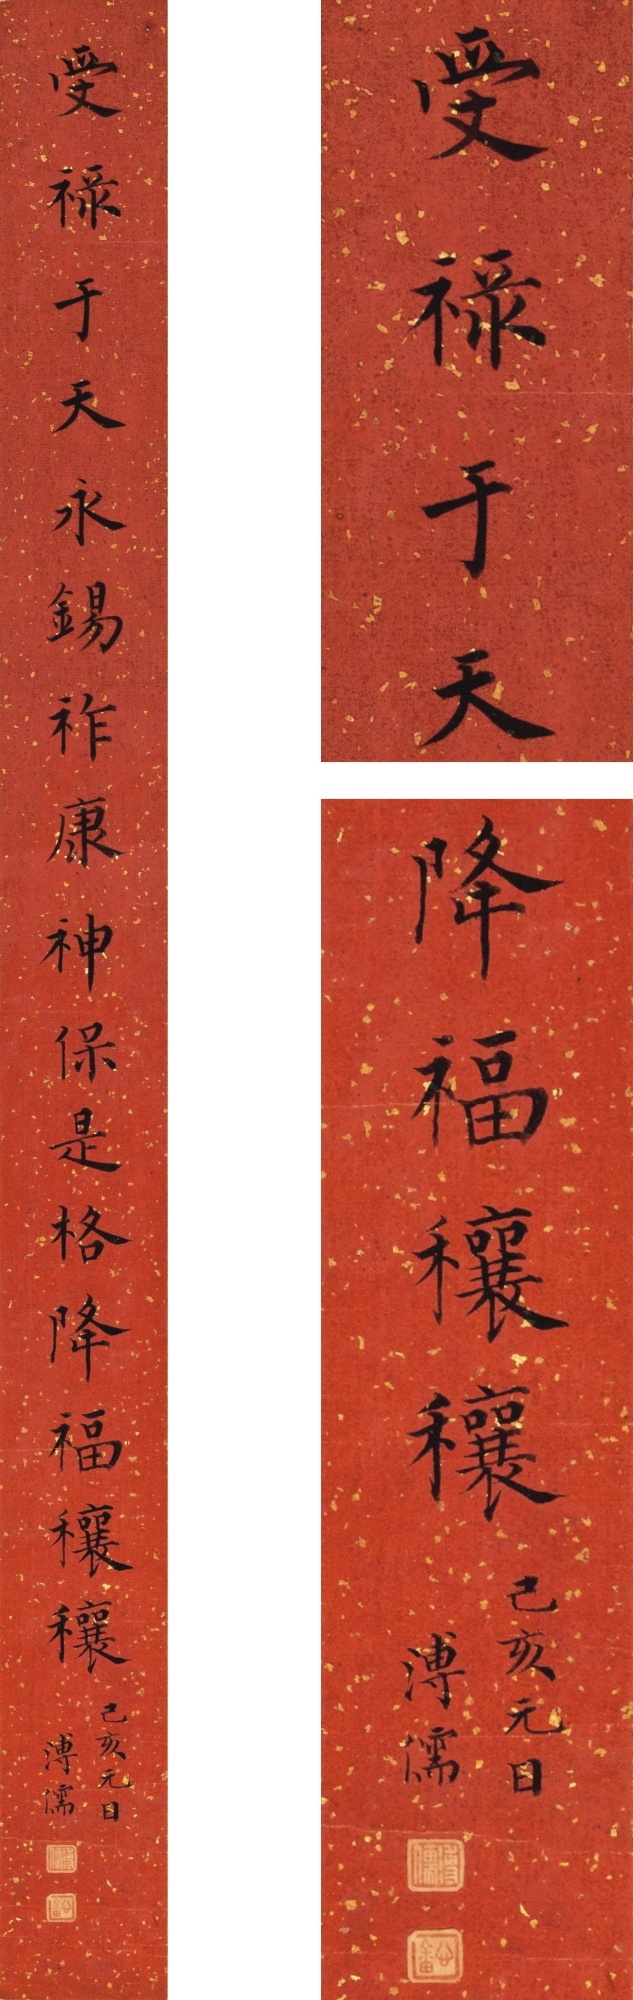 受祿于天永錫祚康神保是格降福穰穰
己亥元日
溥儒
受祿于天
降福穰穰
己亥元日
溥儒